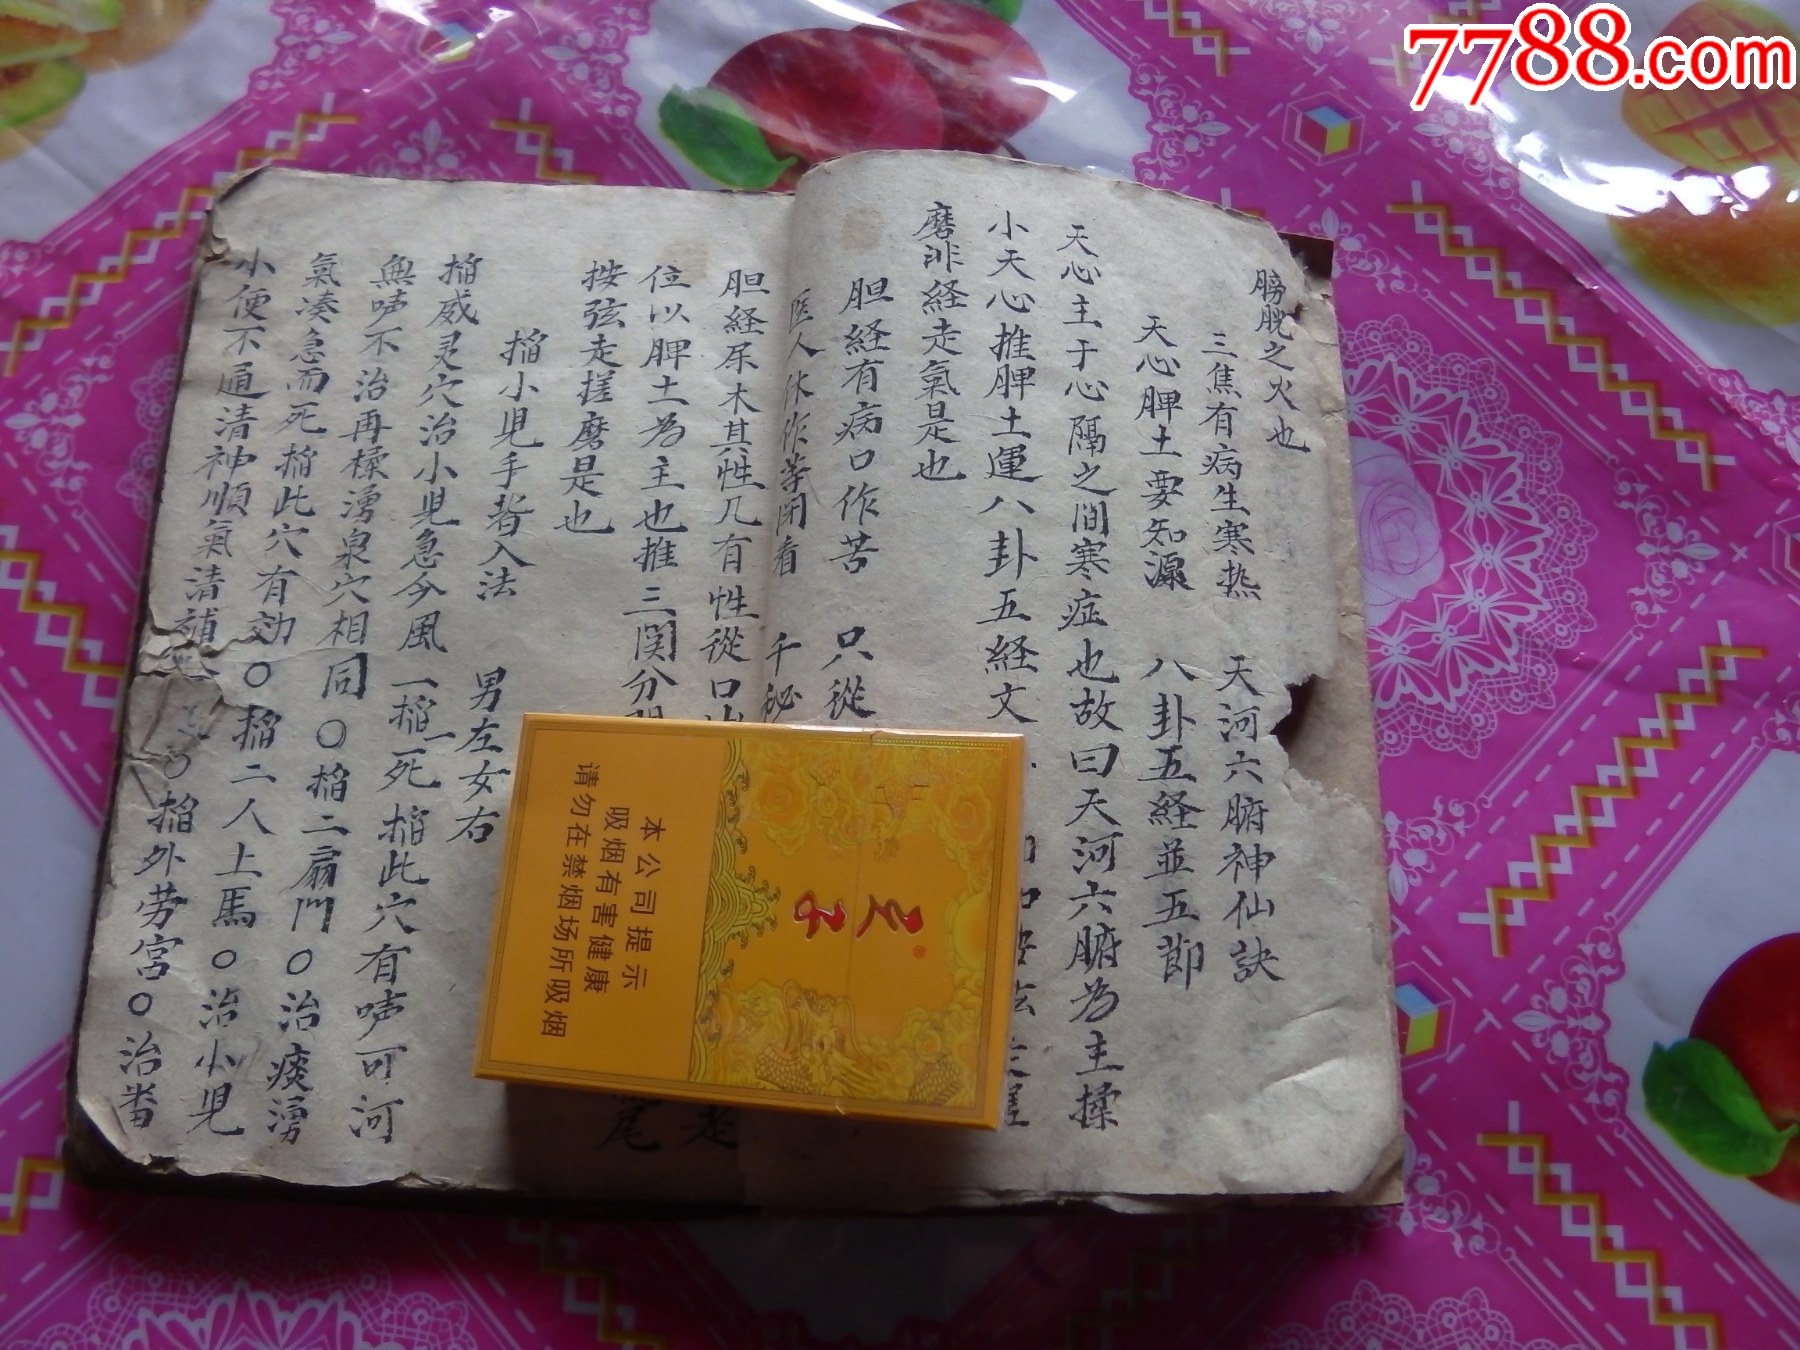 7788.com
膀胱之火也
三焦有病生寒热 天河六腑神仙訣
天心脾土要知源 八卦五経並五節
天心主于心隔之間寒症也故曰天河六腑為主揉
小天心推脾土運八卦五経文
磨非経走氣是也
胆経有病口作苦 只從
医人休作等閑看 千秘
胆経尿木其性几有性從口
位以脾土為主也推三関分
按弦走搓磨是也
掐小児手背入法 男左女右
掐威灵穴治小児急今風一掐死掐此穴有声可河
無声不治再楺湧泉穴相同○掐二扇門○治痰湧
氣凑急而死掐此穴有効○掐二人上馬○治小児
小便不通清神順氣清補 ○掐外劳宮○治
天子
本公司提示
吸烟有害健康
请勿在禁烟场所吸烟